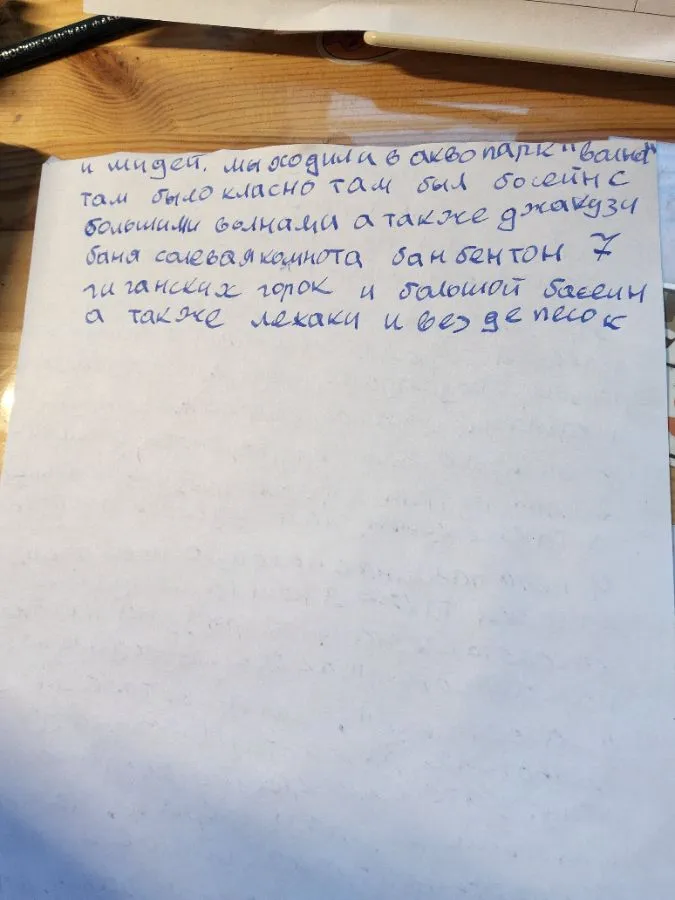 и мидей. мы ходили в аквопарк "волна"
там было класно там был босейн с
большими волнами а также джакузи
баня солевая комнота банбентон 7
гиганских горок и большой басеин
а также лежаки и везде песок